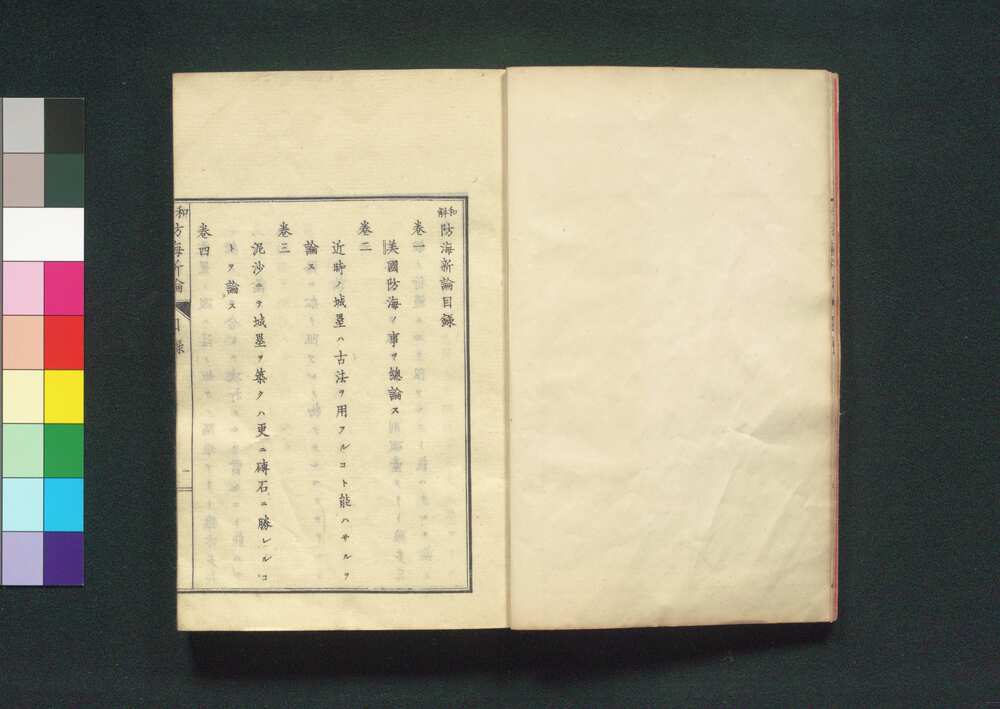 和解防海新論目録
卷一
美國防海ノ事ヲ總論ス
卷二
近時ノ城壘ハ古法ヲ用フルコト能ハサルヲ
論ス
卷三
泥沙ニテ城壘ヲ築クハ更ニ磚石ニ勝レルコ
トヲ論ス
卷四
和
防海新論
目録
一